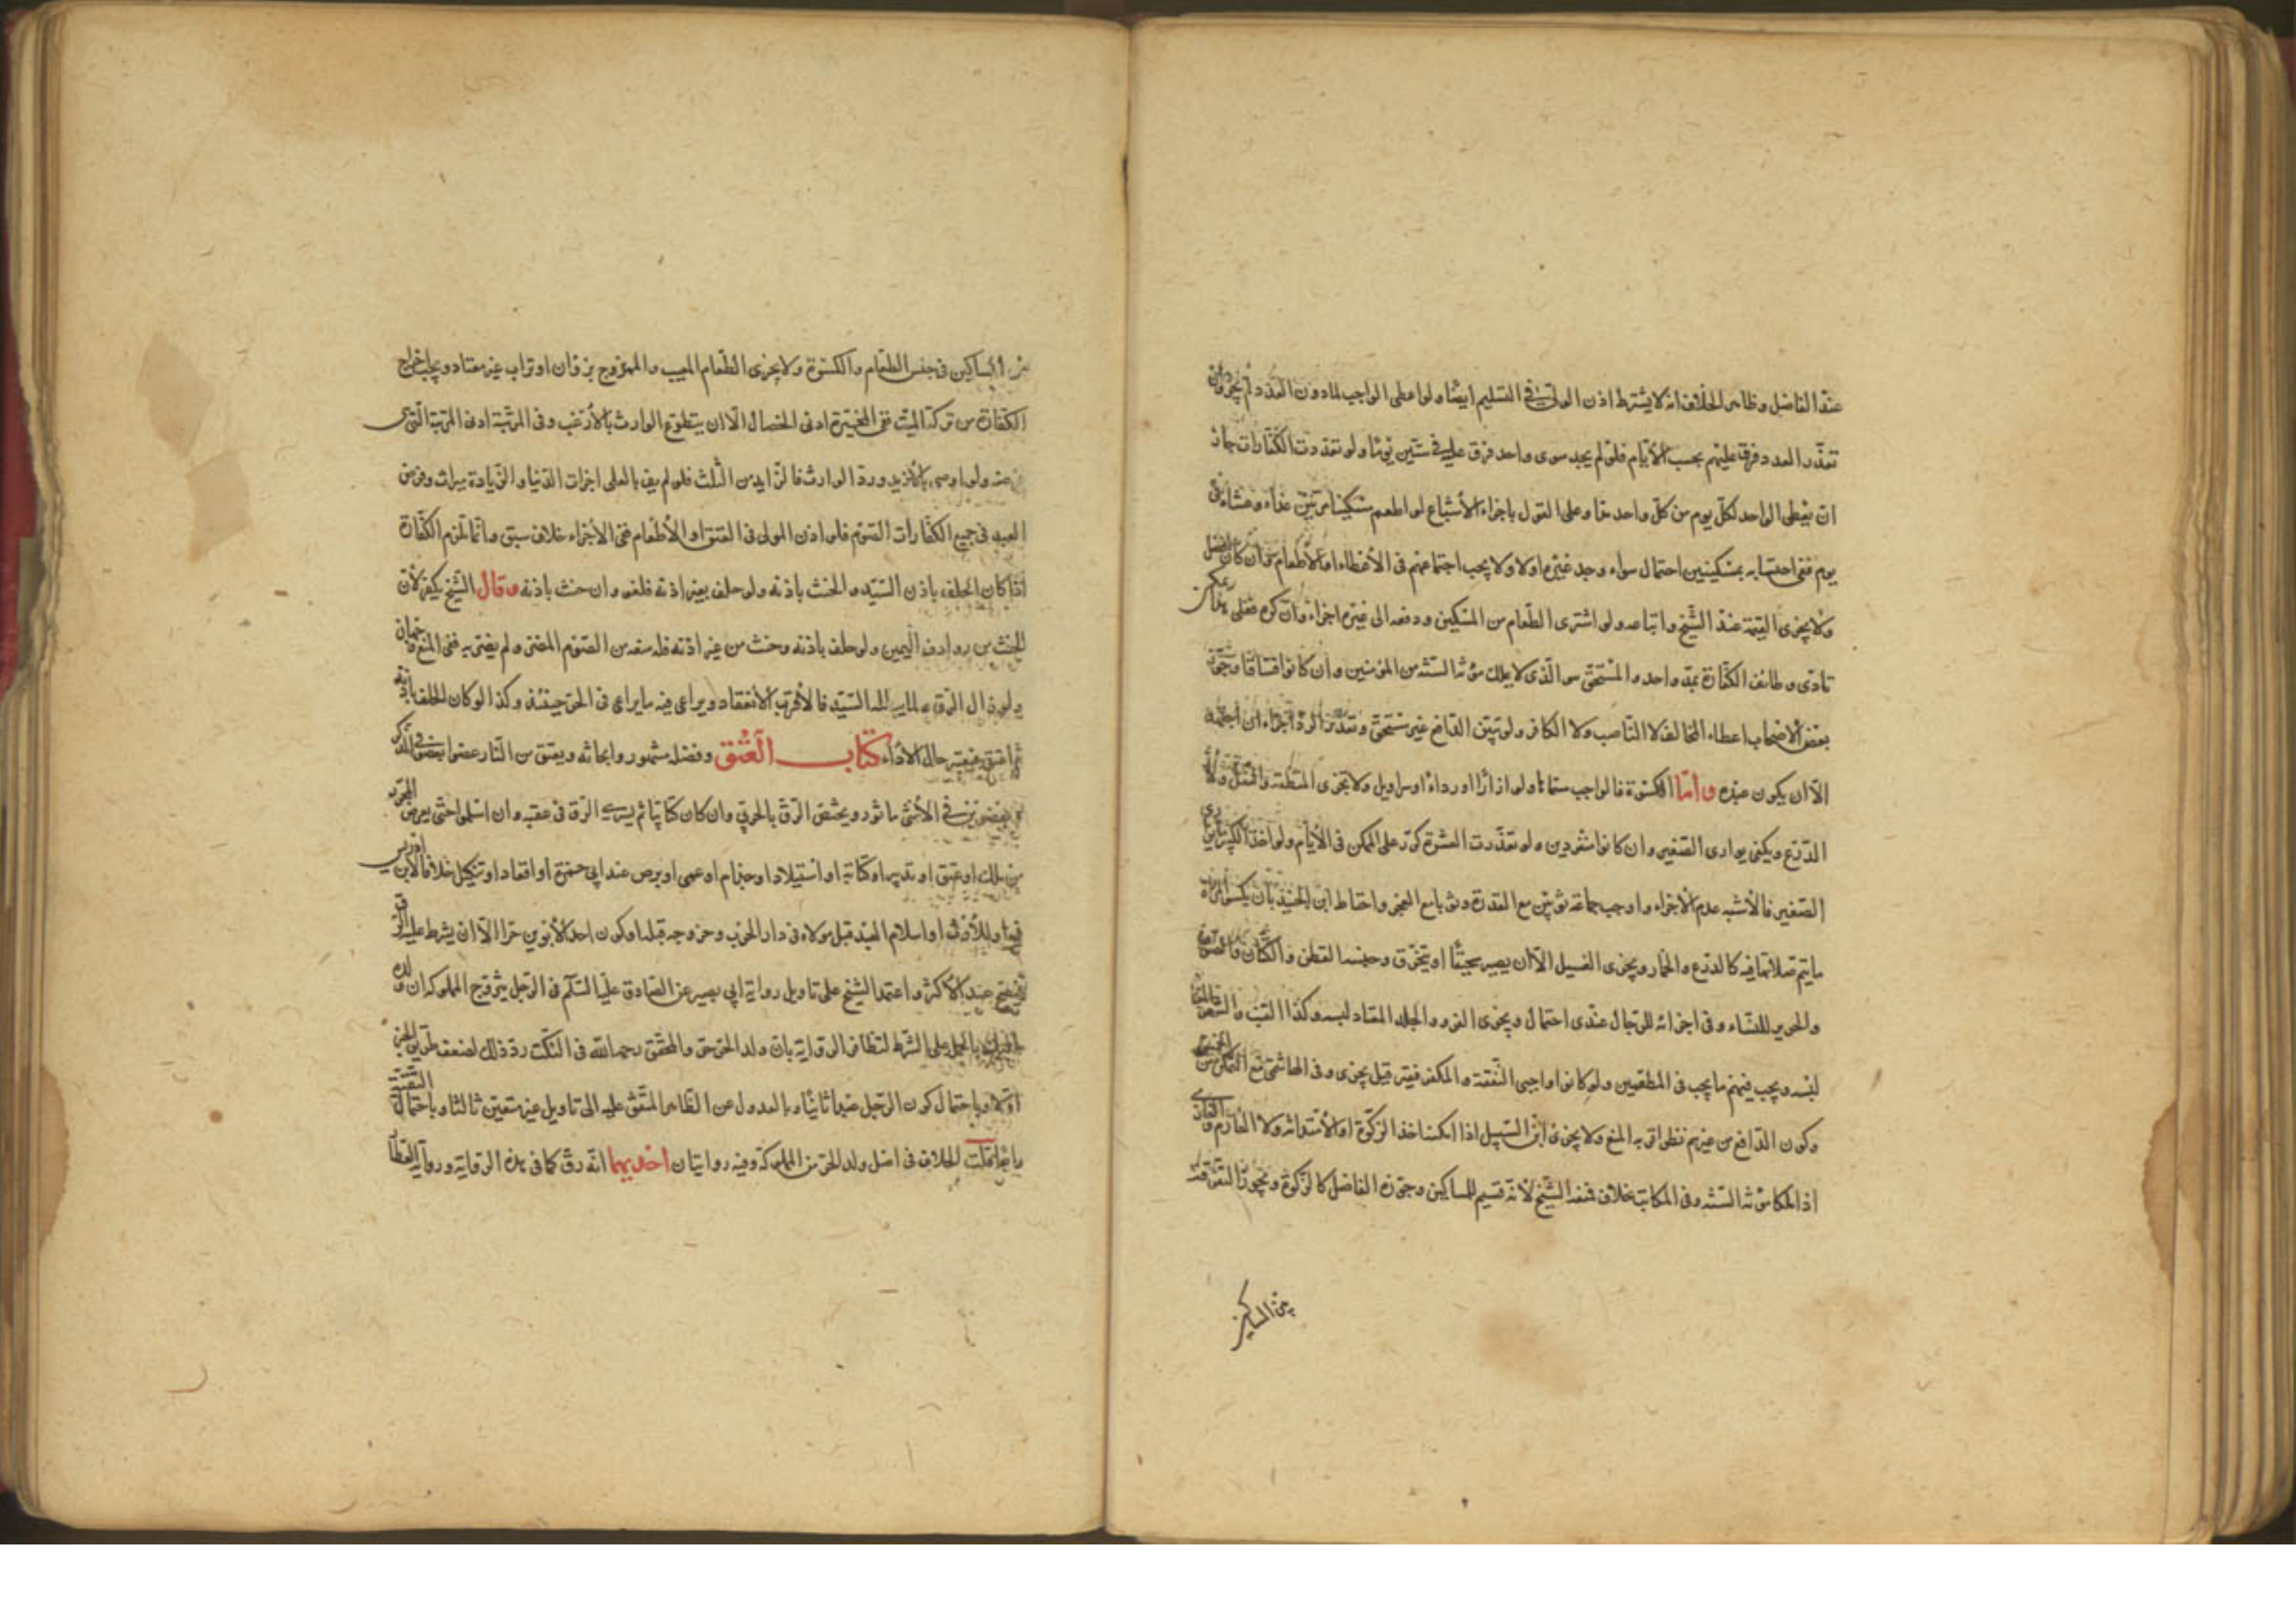 عند الفاضل وظاهر الخلاف انه لا يشترط اذن الولي في التسليم ايضا ولو اعطى الواجب لما دون العدد لم يجز وان
تعذر العدد فرق عليهم بحسب الأيام فلو لم يجد سوى واحد فرق عليه في ستين يوما ولو تعددت الكفارات جاز
ان يعطى الواحد لكل يوم من كل واحد حقا وعلى القول باجزاء الأشباع لو اطعم مسكينا مرتين غداء وعشاء في
يوم ففي احتسابه بمسكينين احتمال سواء وجد غيره اولا ولا يجب اجتماعهم في الأعطاء اما الأطعام وان كان افضل
ولا يجزى القيمة عند الشيخ واتباعه ولو اشترى الطعام من المسكين ودفعه الى غيره اجزاء وان كره فعلى هذا يمكن
تادى وظائف الكفارة بمد واحد والمستحق هو الذي لا يملك مؤنة السنة من المؤمنين وان كانوا فساقا وجوز
بعض الأصحاب اعطاء المخالف لا الناصب ولا الكافر ولو تبين الدافع غير مستحق وتعذر الرد اجزاء ان اجتهد
الا ان يكون عبده واما الكسوة فالواجب مسماها ولو ازارا او رداء او سراويل ولا يجزى المنطقة والخف ولا
الدرع ويكفى يوارى الصغير وان كانوا منفردين ولو تعذرت العشرة كرر على الممكن في الأيام ولو اخذ الكبير ما يوارى
الصغير فالأشبه عدم الأجزاء واوجب جماعة ثوبين مع القدرة وثوبا مع العجز واحتاط ابن الجنيد بان يكسوا المراة
ما يتم صلاتها فيه كالدرع والخمار ويجزى الغسيل الا ان يصير سحيقا او يتخرق وجنسه القطن والكتان والصوف
والحرير للنساء وفي اجزائه للرجال عندى احتمال ويجزى الفرو والجلد المعتاد لبسه وكذا القنب والشعر
لبسه ويجب فيهم ما يجب في المطعمين ولو كانوا واجبى النفقة والمكفر فقير قيل يجزى وفي الهاشمى مع التمكن من الخمس
وكون الدافع من غيرهم نظر اقربه المنع ولا يجزى ابن السبيل اذا امكنه اخذ الزكوة او الأستدانة ولا الغارم والغازى
اذا ملكا مؤنة السنة وفي المكاتب خلاف فمنعه الشيخ لأنه قسيم المساكين وجوزه الفاضل كالزكوة ويجوز التفرقة
بين المساكين
بين المساكين في جنس الطعام والكسوة ولا يجزى الطعام المعيب والممزوج بزوان او تراب غير معتاد ويجب اخراج
الكفارة من تركة الميت ففي المخيرة ادنى الخصال الا ان يتطوع الوارث بالأرغب وفي المرتبة ادنى المرتبة التي هى
فرضه ولو اوصى بالأزيد ورد الوارث فالزايد من الثلث فلو لم يف بالعليا اجزات الدنيا والزيادة ميراث وفرض
العبد في جميع الكفارات الصوم فلو اذن المولى في العتق او الأطعام ففي الأجزاء خلاف سبق وانما تلزم الكفارة
اذا كان الحلف باذن السيد والحنث باذنه ولو حلف بغير اذنه فلغو وان حنث باذنه وقال الشيخ يكفر لأن
الحنث من روادف اليمين ولو حلف باذنه وحنث من غير اذنه فله منعه من الصوم المضر ولو لم يضر به ففي المنع وجهان
ولو زال الرق ولما يبطله السيد فالأقرب الأنعقاد ويراعى فيه ما يراعى في الحر حينئذ وكذا لو كان الحلف باذنه
ثم اعتق فيعتبر حال الأداء كتاب العتق وفضله مشهور وابحاثه ويعتق من النار عضوا بعضو في الذكر
وبعضوين في الأنثى ماثور ويختص الرق بالحربي وان كان كتابيا ثم يسرى الرق في عقبه وان اسلموا حتى يعرض المحرر
من ملك او عتق او تدبير او كتابة او استيلاد او جذام او عمى او برص عند ابي حمزة او اقعاد او تنكيل خلافا لابن ادريس
فيه وللأرث او اسلام العبد قبل مولاه في دار الحرب وخروجه قبله او كون احد الأبوين حرا الا ان يشرط عليه الرق
فيصح عند الأكثر واعتمد الشيخ على تاويل رواية ابي بصير عن الصادق عليه السلام في الرجل يتزوج المملوكة ان ولده
بالحمل على الشرط لتظافر الرواية بان ولد الحر حر والمحقق رحمه الله في النكت رد ذلك لضعف طريق الخبر
اولا وباحتمال كون الرجل عبدا ثانيا وبالعدول عن الظاهر المتفق عليه الى تاويل غير متعين ثالثا وباحتمال التقية
رابعا قلت الخلاف في اصل ولد الحر من المملوكة وفيه روايتان احديهما انه رق كما في هذه الرواية ورواية العطار